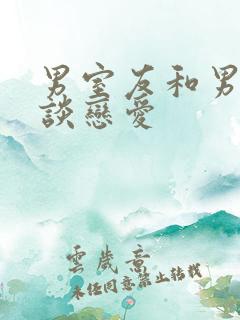 男室友和男
談戀愛
雲歲意
未經同意禁止轉載